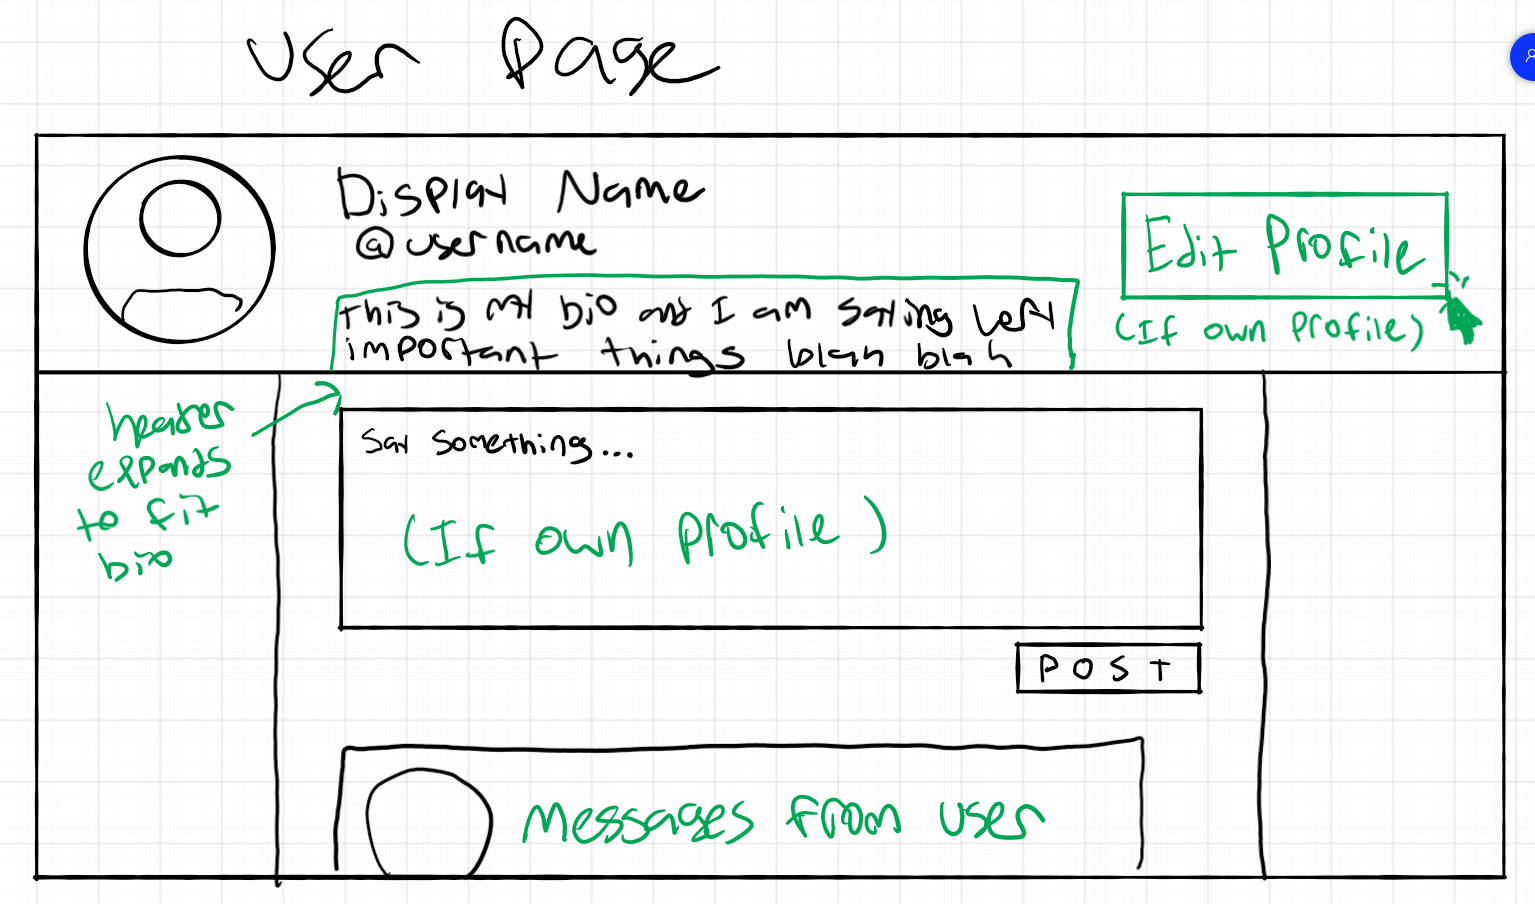 User Page
Display Name
@username
This is my bio and I am saying very
important things blah blah
Edit Profile
(If own profile)
header
expands
to fit
bio
Say something...
(If own profile)
POST
messages from user